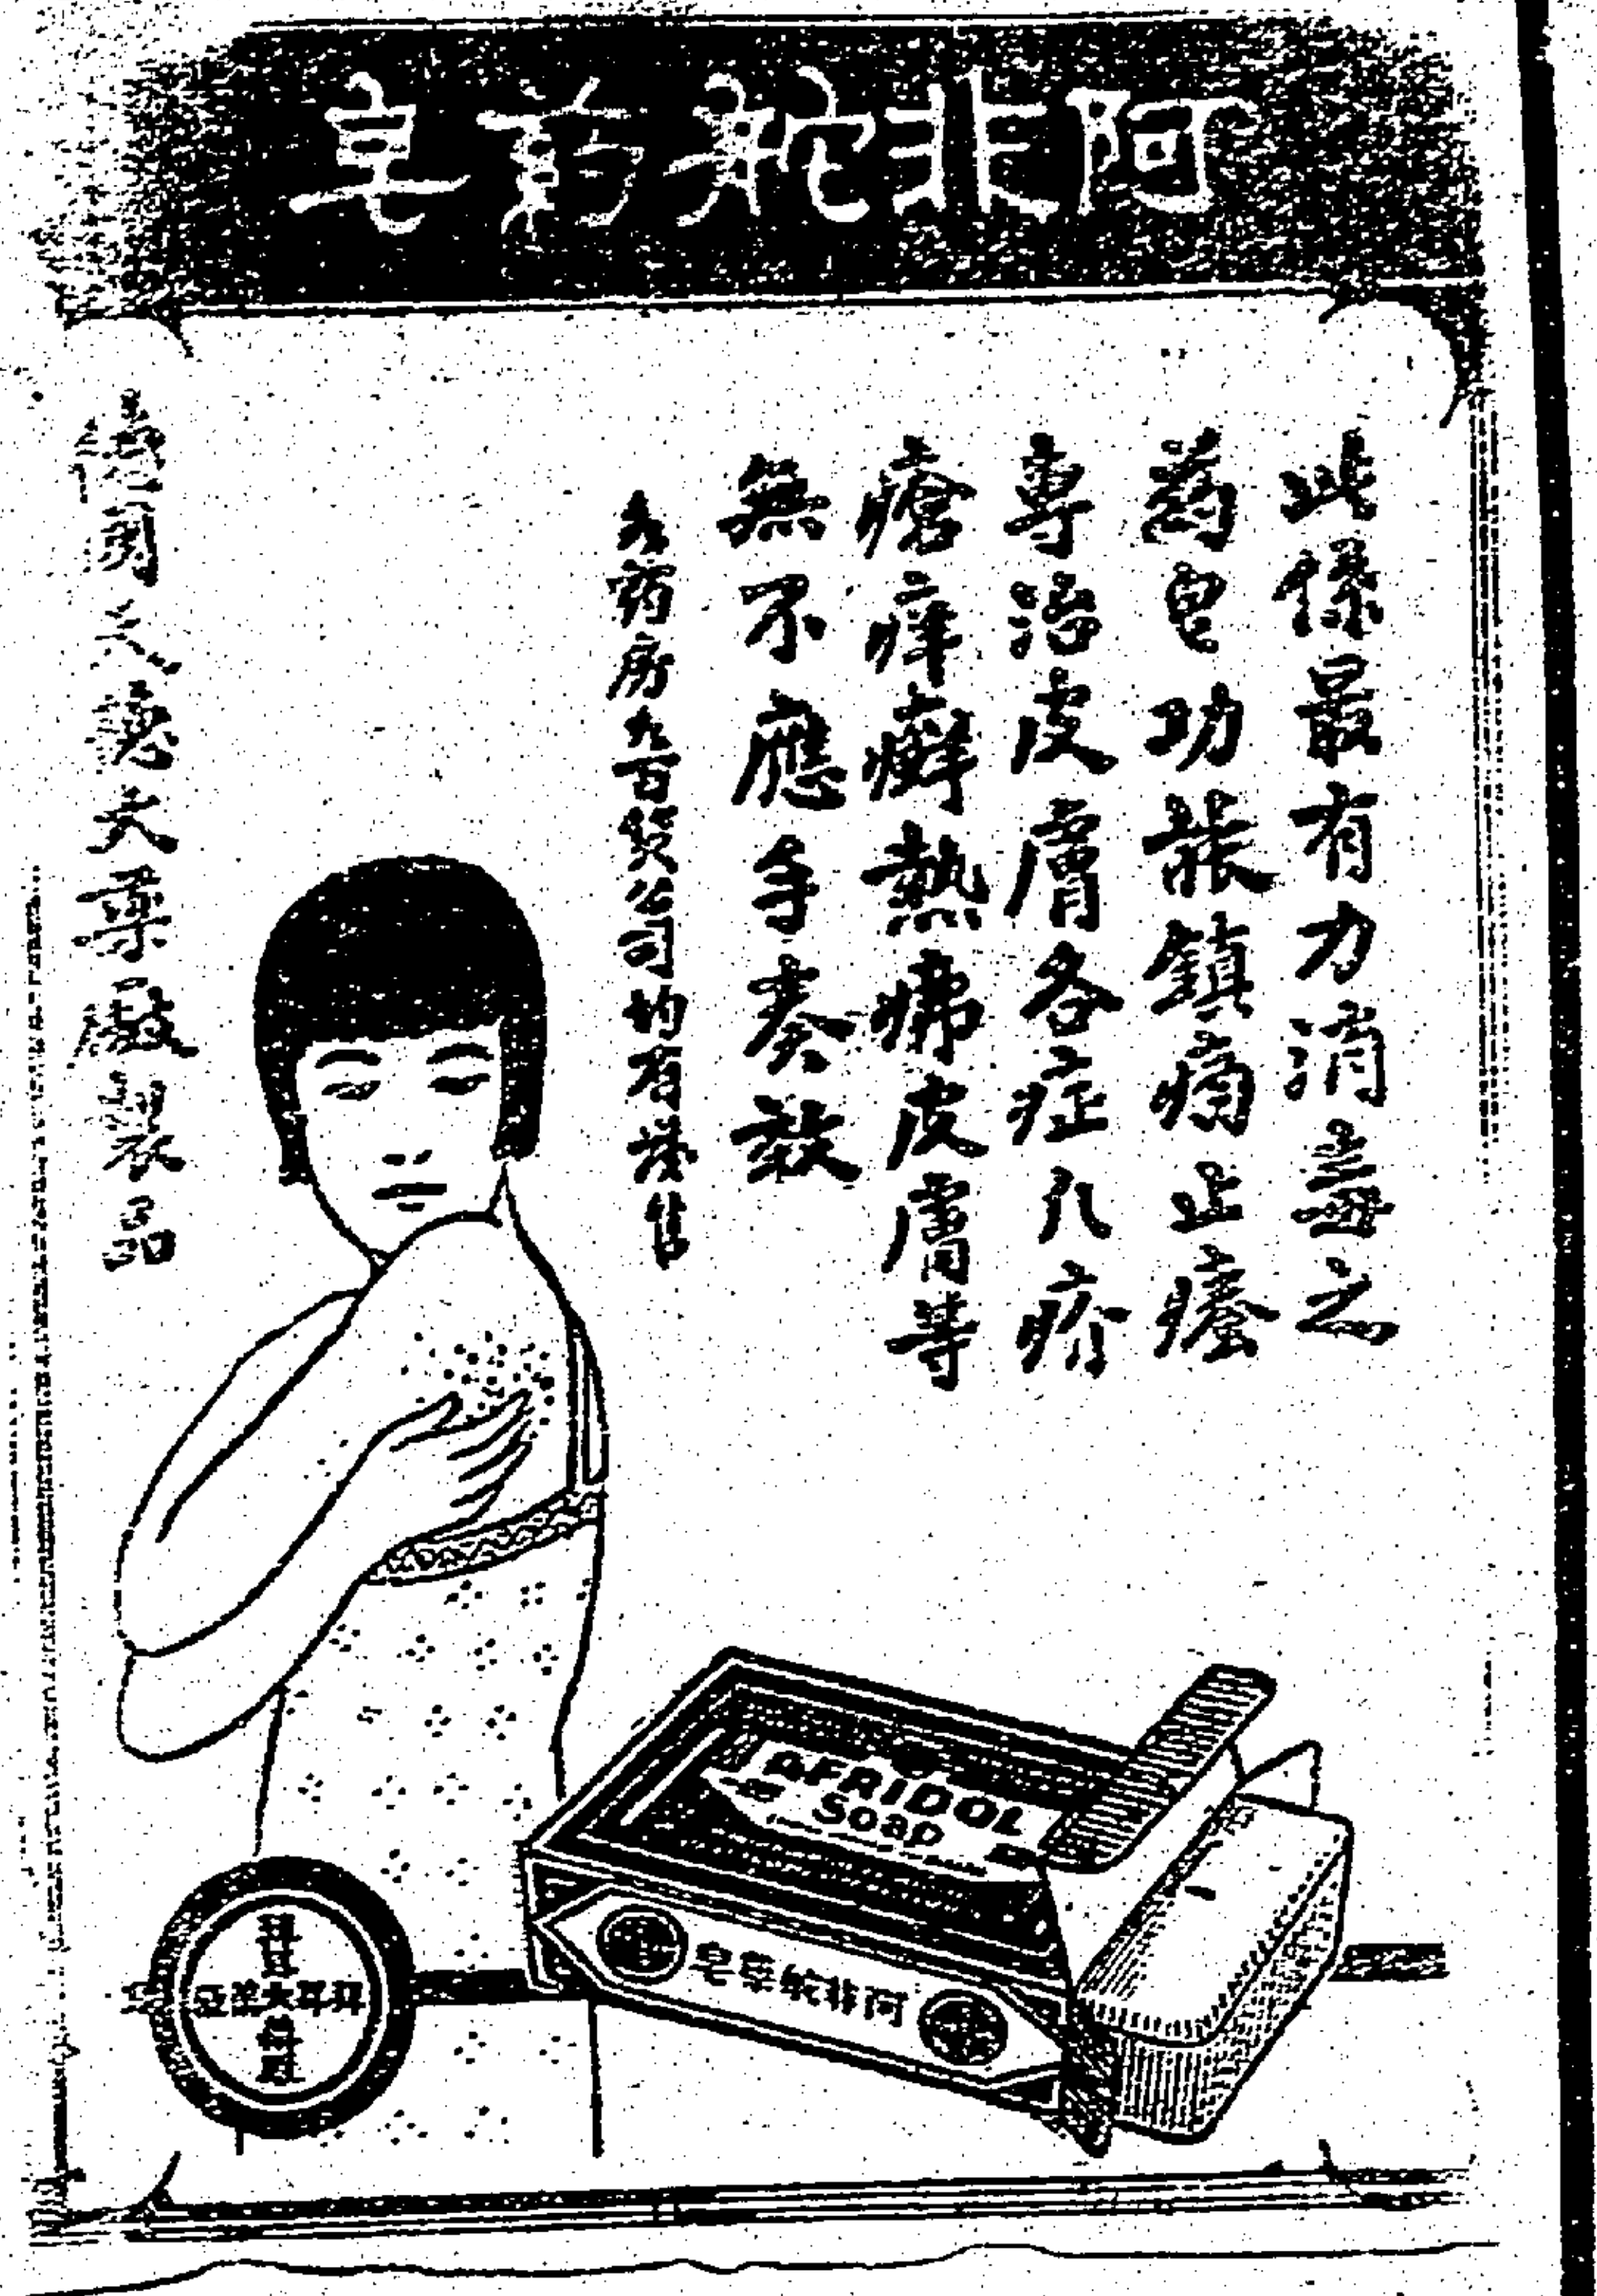 阿非舵葯皂
此係最有力消毒之
葯皂功能鎮痛止癢
專治皮膚各症凡疥
瘡痒癬熱疿皮膚等
無不應手奏效
各葯房各百貨公司均有發售
德國天德大藥廠製品
AFRIDOL
Soap
阿非舵藥皂